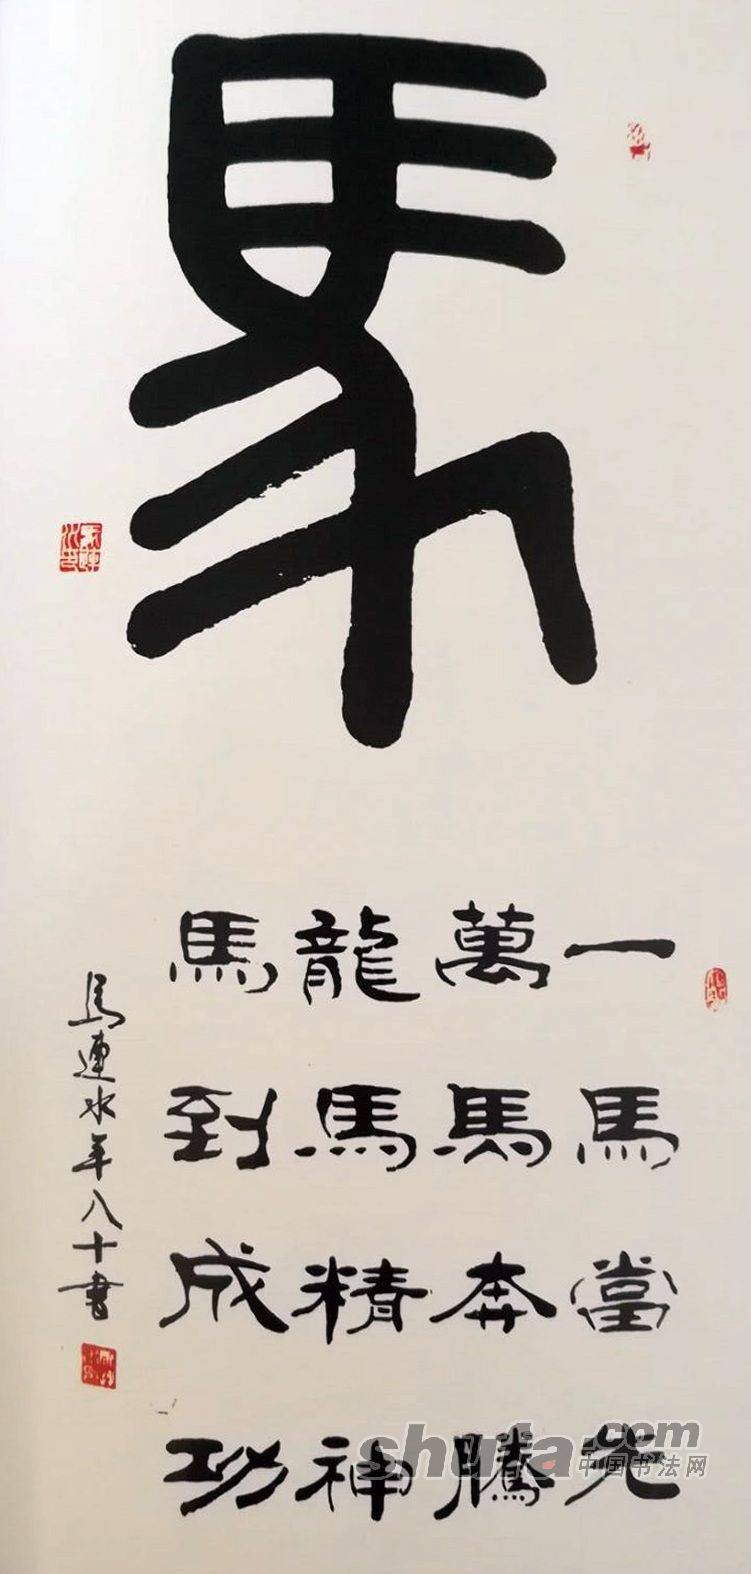 馬
一馬當先
萬馬奔騰
龍馬精神
馬到成功
馬連水年八十書
shufa.com
中国书法网